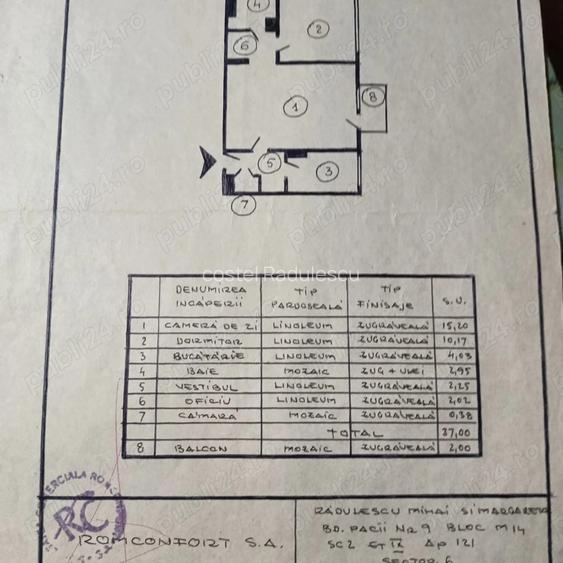 4
2
6
1
8
5
3
7
DENUMIREA ÎNCAPERII TIP PARDOSEALĂ TIP FINISAJE S.U.
1 CAMERĂ DE ZI LINOLEUM ZUGRĂVEALĂ 15,20
2 DORMITOR LINOLEUM ZUGRĂVEALĂ 10,17
3 BUCĂTĂRIE LINOLEUM ZUGRĂVEALĂ 4,03
4 BAIE MOZAIC ZUG + ULEI 2,95
5 VESTIBUL LINOLEUM ZUGRĂVEALĂ 2,25
6 OFICIU LINOLEUM ZUGRĂVEALĂ 2,02
7 CĂMARĂ MOZAIC ZUGRĂVEALĂ 0,38
TOTAL 37,00
8 BALCON MOZAIC ZUGRĂVEALĂ 2,00
costel Radulescu
RC
ROMCONFORT S.A.
RĂDULESCU MIHAI SI MARGARETA
BD. PACII NR 9 BLOC M14
SC 2 ET IX AP 121
SECTOR 6
publi24.ro